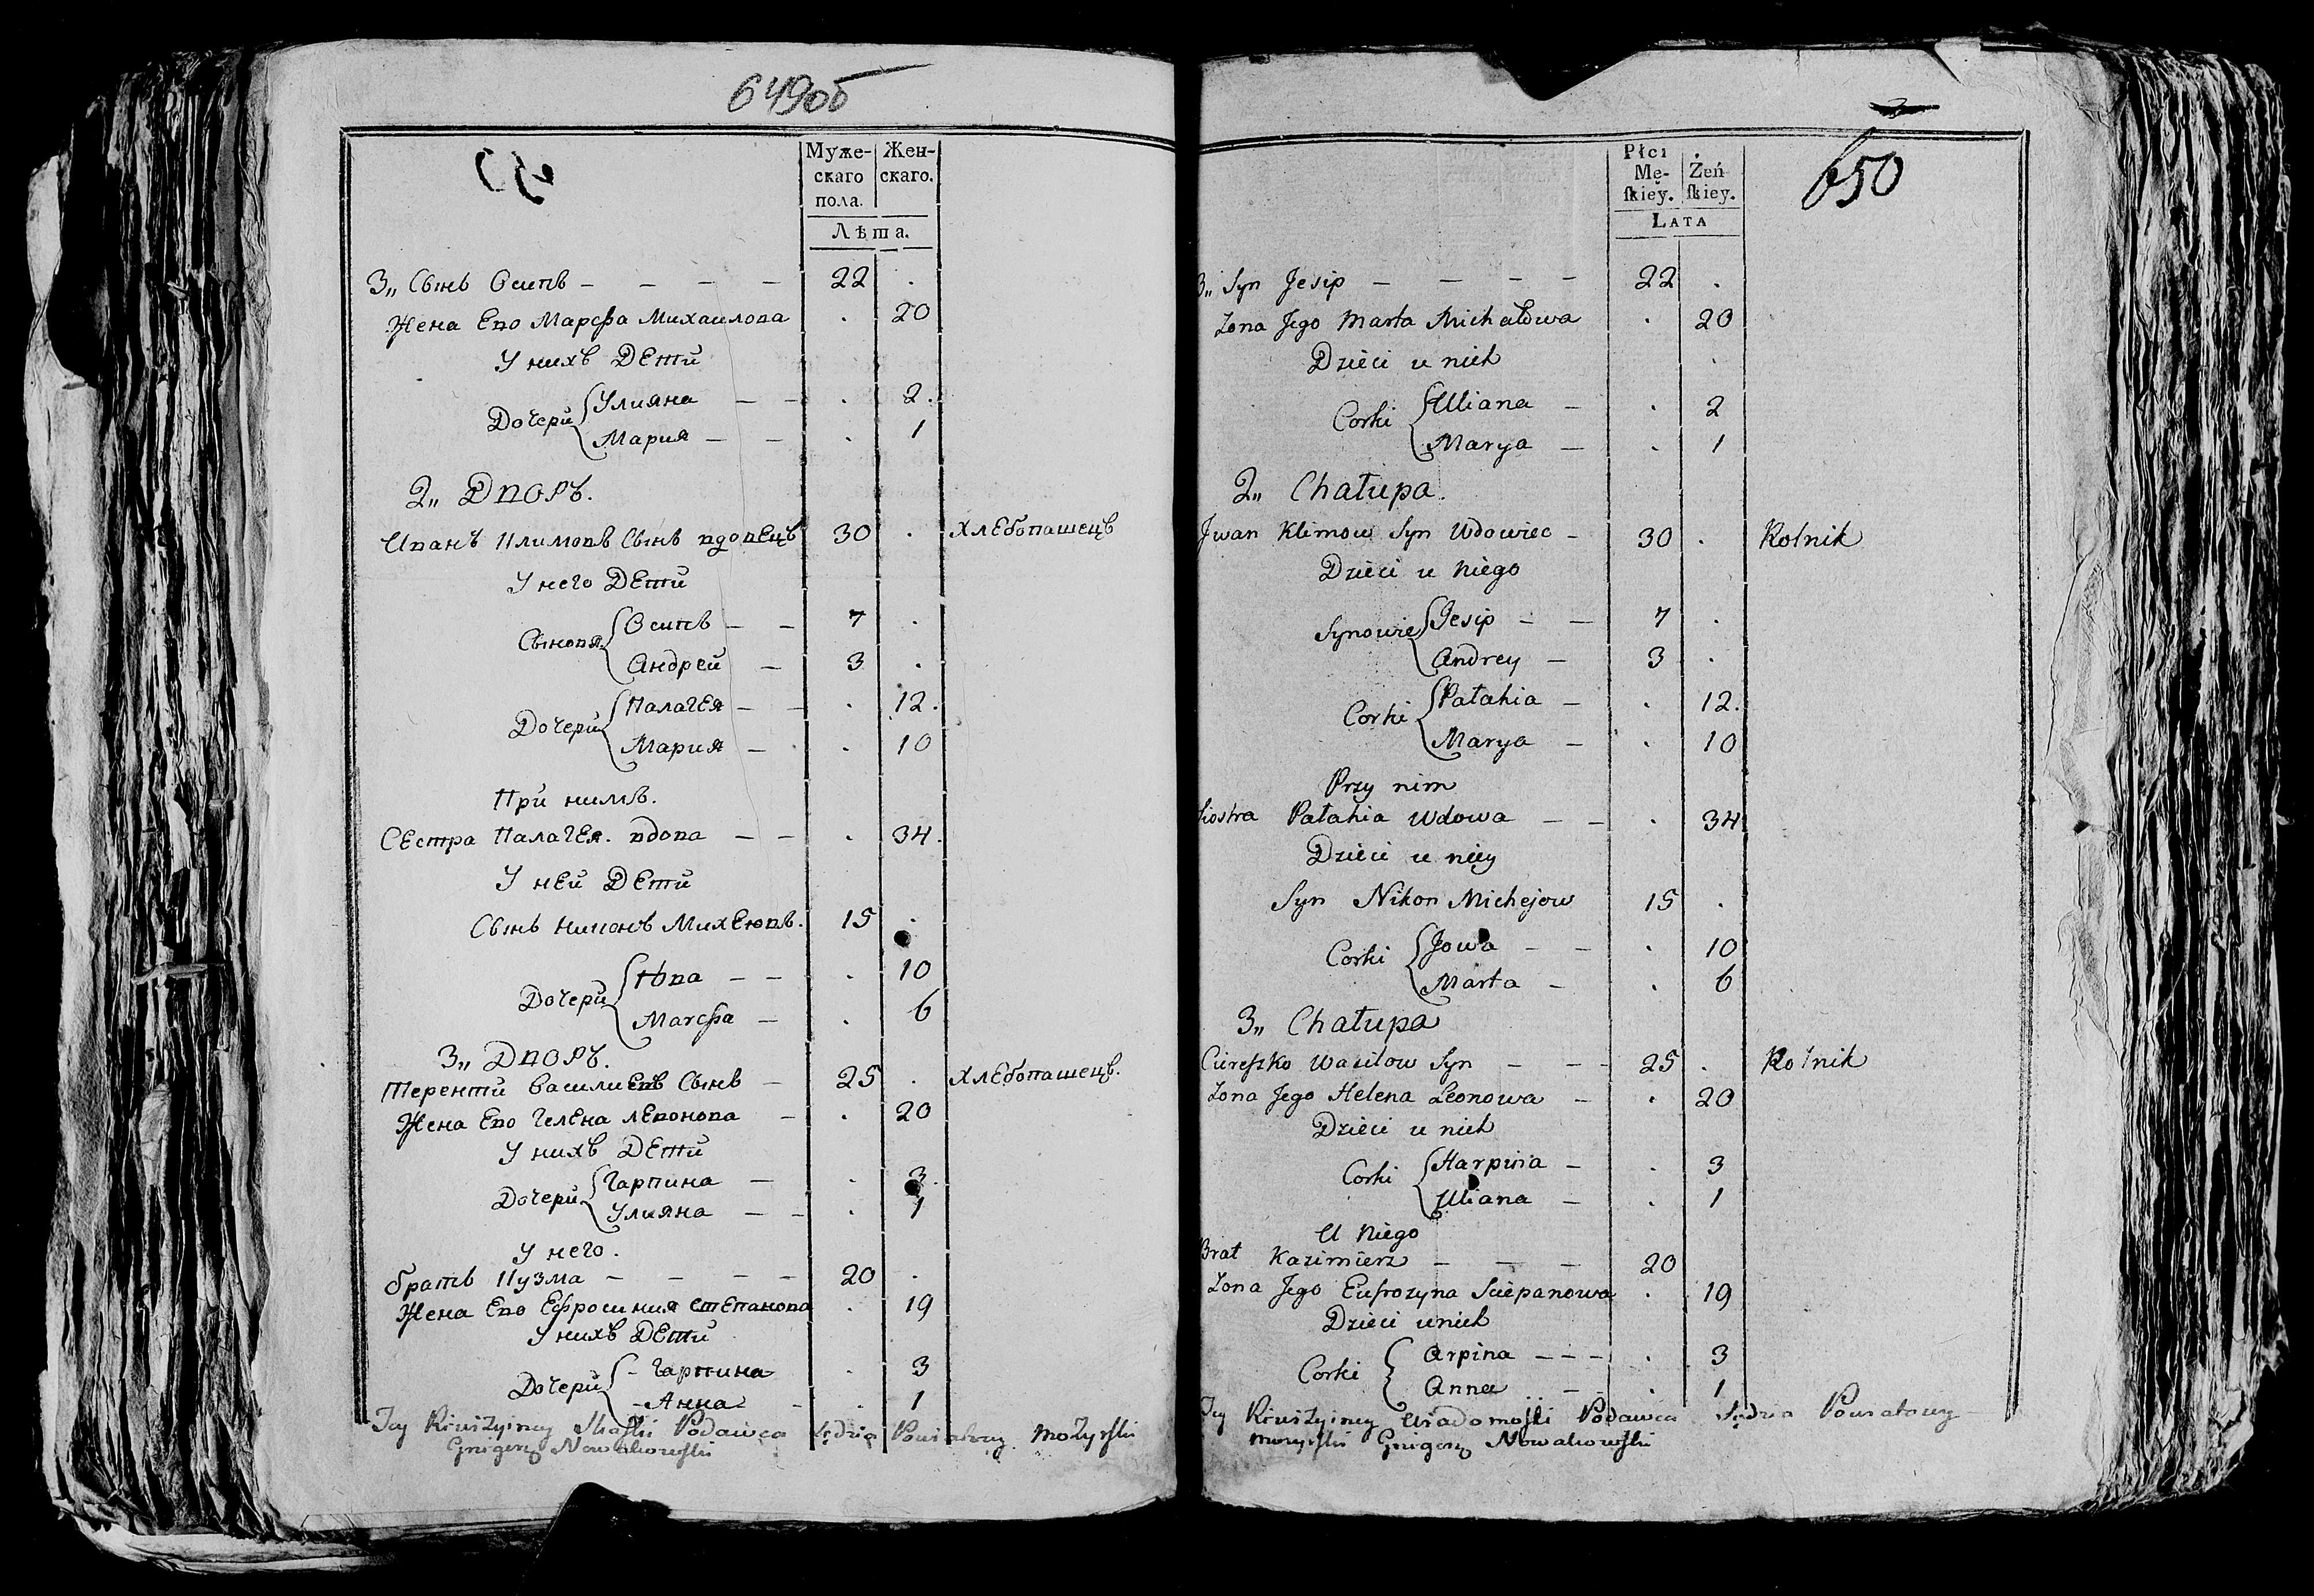 649об
Муже-
скаго
пола.
Жен-
скаго.
Лѣта.
3„ Сынъ Осипъ – – – – 22 .
Жена Его Марѳа Михаилова . 20
У нихъ Дети
Дочери Улияна – – . 2.
Мария – – . 1
2„ Дворъ.
Иванъ Климовъ Сынъ вдовецъ 30 . хлебопашецъ
У него Дети
Сыновя Осипъ – – 7 .
Андрей – 3 .
Дочери Палагея – – . 12.
Мария – . 10
При нимъ.
Сестра Палагея. вдова – – . 34.
У ней Дети
Сынъ Никонъ Михеювъ. 15 .
Дочери Юва – – . 10
Марѳа – . 6
3„ Дворъ.
Терентй Василиевъ Сынъ – 25 . хлебопашецъ.
Жена Его Гелена Левонова – . 20
У нихъ Дети
Дочери Гарпина – . 3
Улияна – – . 1
У него.
братъ Кузма – – – – 20 .
Жена Его Ефросиния Степанова . 19
У нихъ Дети
Дочери – Гарпина . 3
– Анна – . 1
Podawca Sędzia Powiatowy Mozyrſki
Grzigerz Nowakowſki
650
Płci
Mę-
ſkiey.
Żeń
ſkiey.
LATA
3„ Syn Jesip – – – – 22 .
Zona Jego Marta Michałowa . 20
Dzieci u nich .
Corki Uliana – . 2
Marya – . 1
2„ Chałupa.
Jwan Klimow Syn Wdowiec – 30 . Rolnik
Dzieci u Niego
Synowie Jesip – – 7 .
Andrey – 3 .
Corki Pałahia – . 12.
Marya – . 10
Przy nim
Siostra Pałahia Wdowa – – . 34
Dzieci u niey
Syn Nikon Michejow 15 .
Corki Jowa – – . 10
Marta – . 6
3„ Chałupa
Cireſzko Wasilow Syn – – – 25 . Rolnik
Zona Jego Helena Leonowa – . 20
Dzieci u nich
Corki Harpina – . 3
Uliana – . 1
U Niego
Brat Kazimierz – – – 20
Zona Jego Eufrozyna Sciepanowa . 19
Dzieci u nich
Corki Arpina – – – . 3
Anna – – . 1
Podawca Sędzia Powiatowy
Mozyrſki Grzigerz Nowakowſki